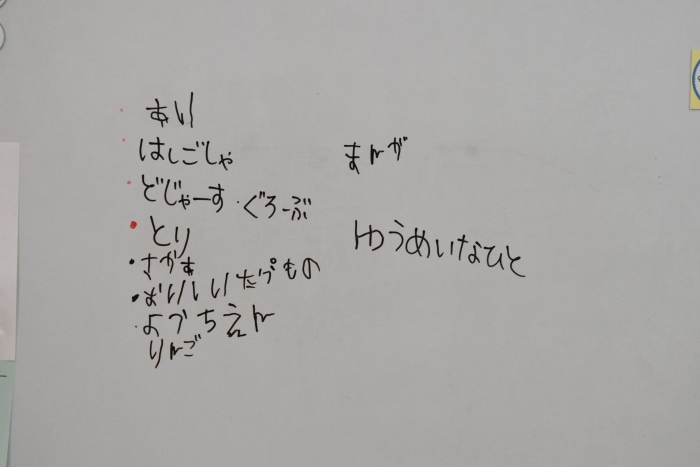 はしごしゃ
まんが
どじゃーす・ぐろーぶ
・とり
ゆうめいなひと
・おいしいたべもの
・ようちえん
りんご